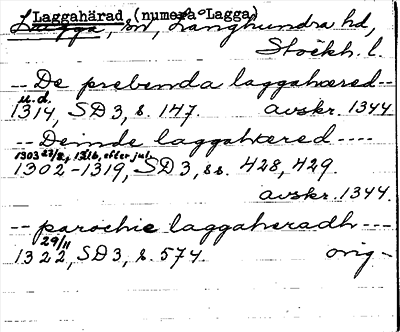 Laggahärad (numera Lagga)
Lagga, sn, Långhundra hd,
Stockh. l.
-- De prebenda laggahæred --
u.d.
1314, SD 3, s. 147. avskr. 1344
-- Deinde laggahæred ----
1303 27/2, 1316, efter jul
1302-1319, SD 3, ss. 428, 429.
avskr. 1344.
-- parochie laggaheradh ---
29/11
1322, SD 3, s. 574. orig -